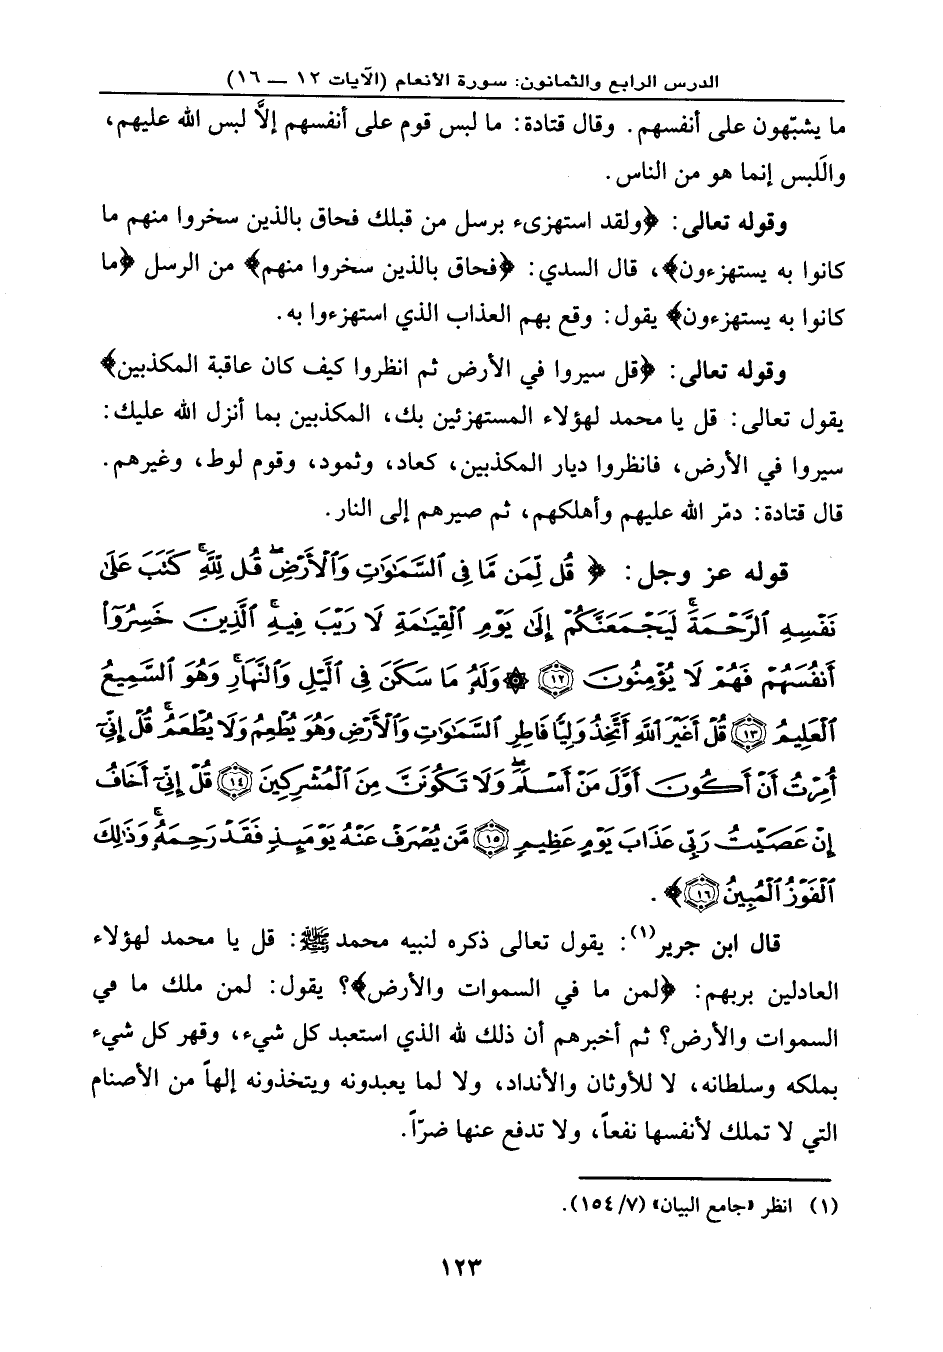 الدرس الرابع والثمانون: سورة الأنعام (الآيات ١٢ — ١٦)
ما يشبّهون على أنفسهم. وقال قتادة: ما لبس قوم على أنفسهم إلاَّ لبس الله عليهم،
واللَبس إنما هو من الناس.
وقوله تعالى: ﴿ولقد استهزىء برسل من قبلك فحاق بالذين سخروا منهم ما
كانوا به يستهزءون﴾، قال السدي: ﴿فحاق بالذين سخروا منهم﴾ من الرسل ﴿ما
كانوا به يستهزءون﴾ يقول: وقع بهم العذاب الذي استهزءوا به.
وقوله تعالى: ﴿قل سيروا في الأرض ثم انظروا كيف كان عاقبة المكذبين﴾
يقول تعالى: قل يا محمد لهؤلاء المستهزئين بك، المكذبين بما أنزل الله عليك:
سيروا في الأرض، فانظروا ديار المكذبين، كعاد، وثمود، وقوم لوط، وغيرهم.
قال قتادة: دمّر الله عليهم وأهلكهم، ثم صيرهم إلى النار.
قوله عز وجل: ﴿ قُل لِّمَن مَّا فِى ٱلسَّمَٰوَٰتِ وَٱلْأَرْضِۖ قُل لِّلَّهِۚ كَتَبَ عَلَىٰ
نَفْسِهِ ٱلرَّحْمَةَۚ لَيَجْمَعَنَّكُمْ إِلَىٰ يَوْمِ ٱلْقِيَٰمَةِ لَا رَيْبَ فِيهِۚ ٱلَّذِينَ خَسِرُوٓا۟
أَنفُسَهُمْ فَهُمْ لَا يُؤْمِنُونَ ﴿١٢﴾ ۞ وَلَهُۥ مَا سَكَنَ فِى ٱلَّيْلِ وَٱلنَّهَارِۚ وَهُوَ ٱلسَّمِيعُ
ٱلْعَلِيمُ ﴿١٣﴾ قُلْ أَغَيْرَ ٱللَّهِ أَتَّخِذُ وَلِيًّا فَاطِرِ ٱلسَّمَٰوَٰتِ وَٱلْأَرْضِ وَهُوَ يُطْعِمُ وَلَا يُطْعَمُۗ قُلْ إِنِّىٓ
أُمِرْتُ أَنْ أَكُونَ أَوَّلَ مَنْ أَسْلَمَۖ وَلَا تَكُونَنَّ مِنَ ٱلْمُشْرِكِينَ ﴿١٤﴾ قُلْ إِنِّىٓ أَخَافُ
إِنْ عَصَيْتُ رَبِّى عَذَابَ يَوْمٍ عَظِيمٍ ﴿١٥﴾ مَّن يُصْرَفْ عَنْهُ يَوْمَئِذٍ فَقَدْ رَحِمَهُۥۚ وَذَٰلِكَ
ٱلْفَوْزُ ٱلْمُبِينُ ﴿١٦﴾ ﴾.
قال ابن جرير(١): يقول تعالى ذكره لنبيه محمد ﷺ: قل يا محمد لهؤلاء
العادلين بربهم: ﴿لمن ما في السموات والأرض﴾؟ يقول: لمن ملك ما في
السموات والأرض؟ ثم أخبرهم أن ذلك لله الذي استعبد كل شيء، وقهر كل شيء
بملكه وسلطانه، لا للأوثان والأنداد، ولا لما يعبدونه ويتخذونه إلهاً من الأصنام
التي لا تملك لأنفسها نفعاً، ولا تدفع عنها ضرّاً.
(١) انظر «جامع البيان» (٧/ ١٥٤).
١٢٣